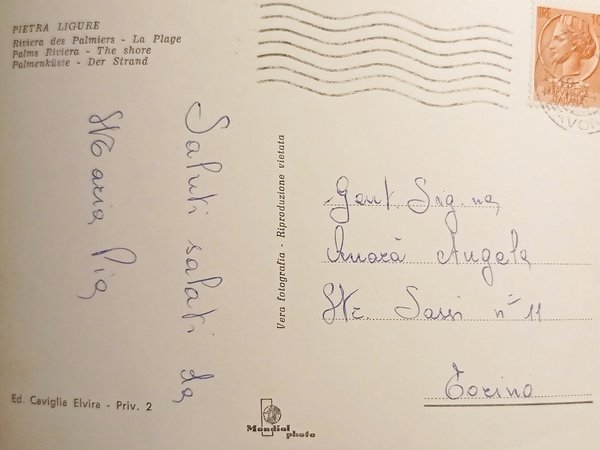 PIETRA LIGURE
Riviera des Palmiers - La Plage
Palms Riviera - The shore
Palmenküste - Der Strand
Saluti salati da
Maria Pia
Vera fotografia - Riproduzione vietata
Gent. Sig.na
Anarà Angela
Str. Sassi n° 11
Torino
Ed. Caviglia Elvira - Priv. 2
Mondial
photo